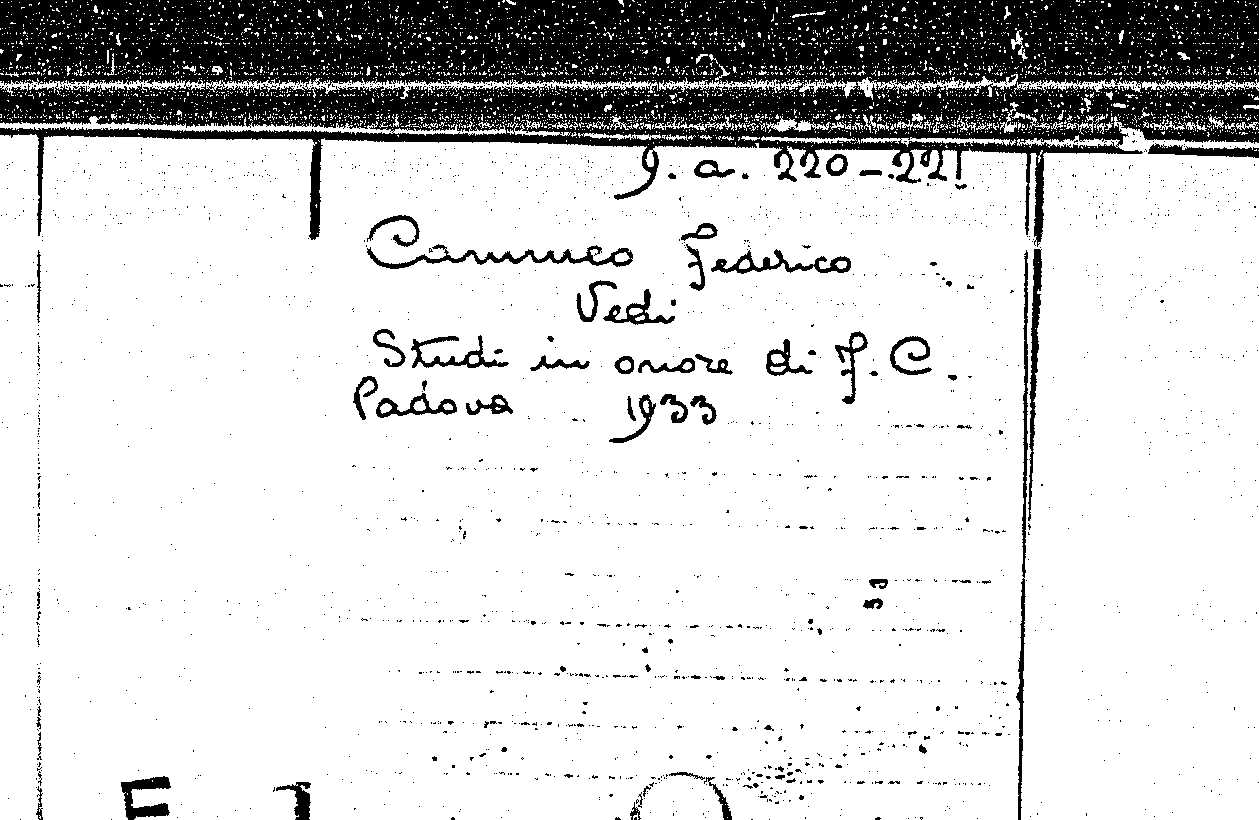 9. a. 220-221
Cammeo Federico
Vedi
Studi in onore di F. C.
Padova 1933